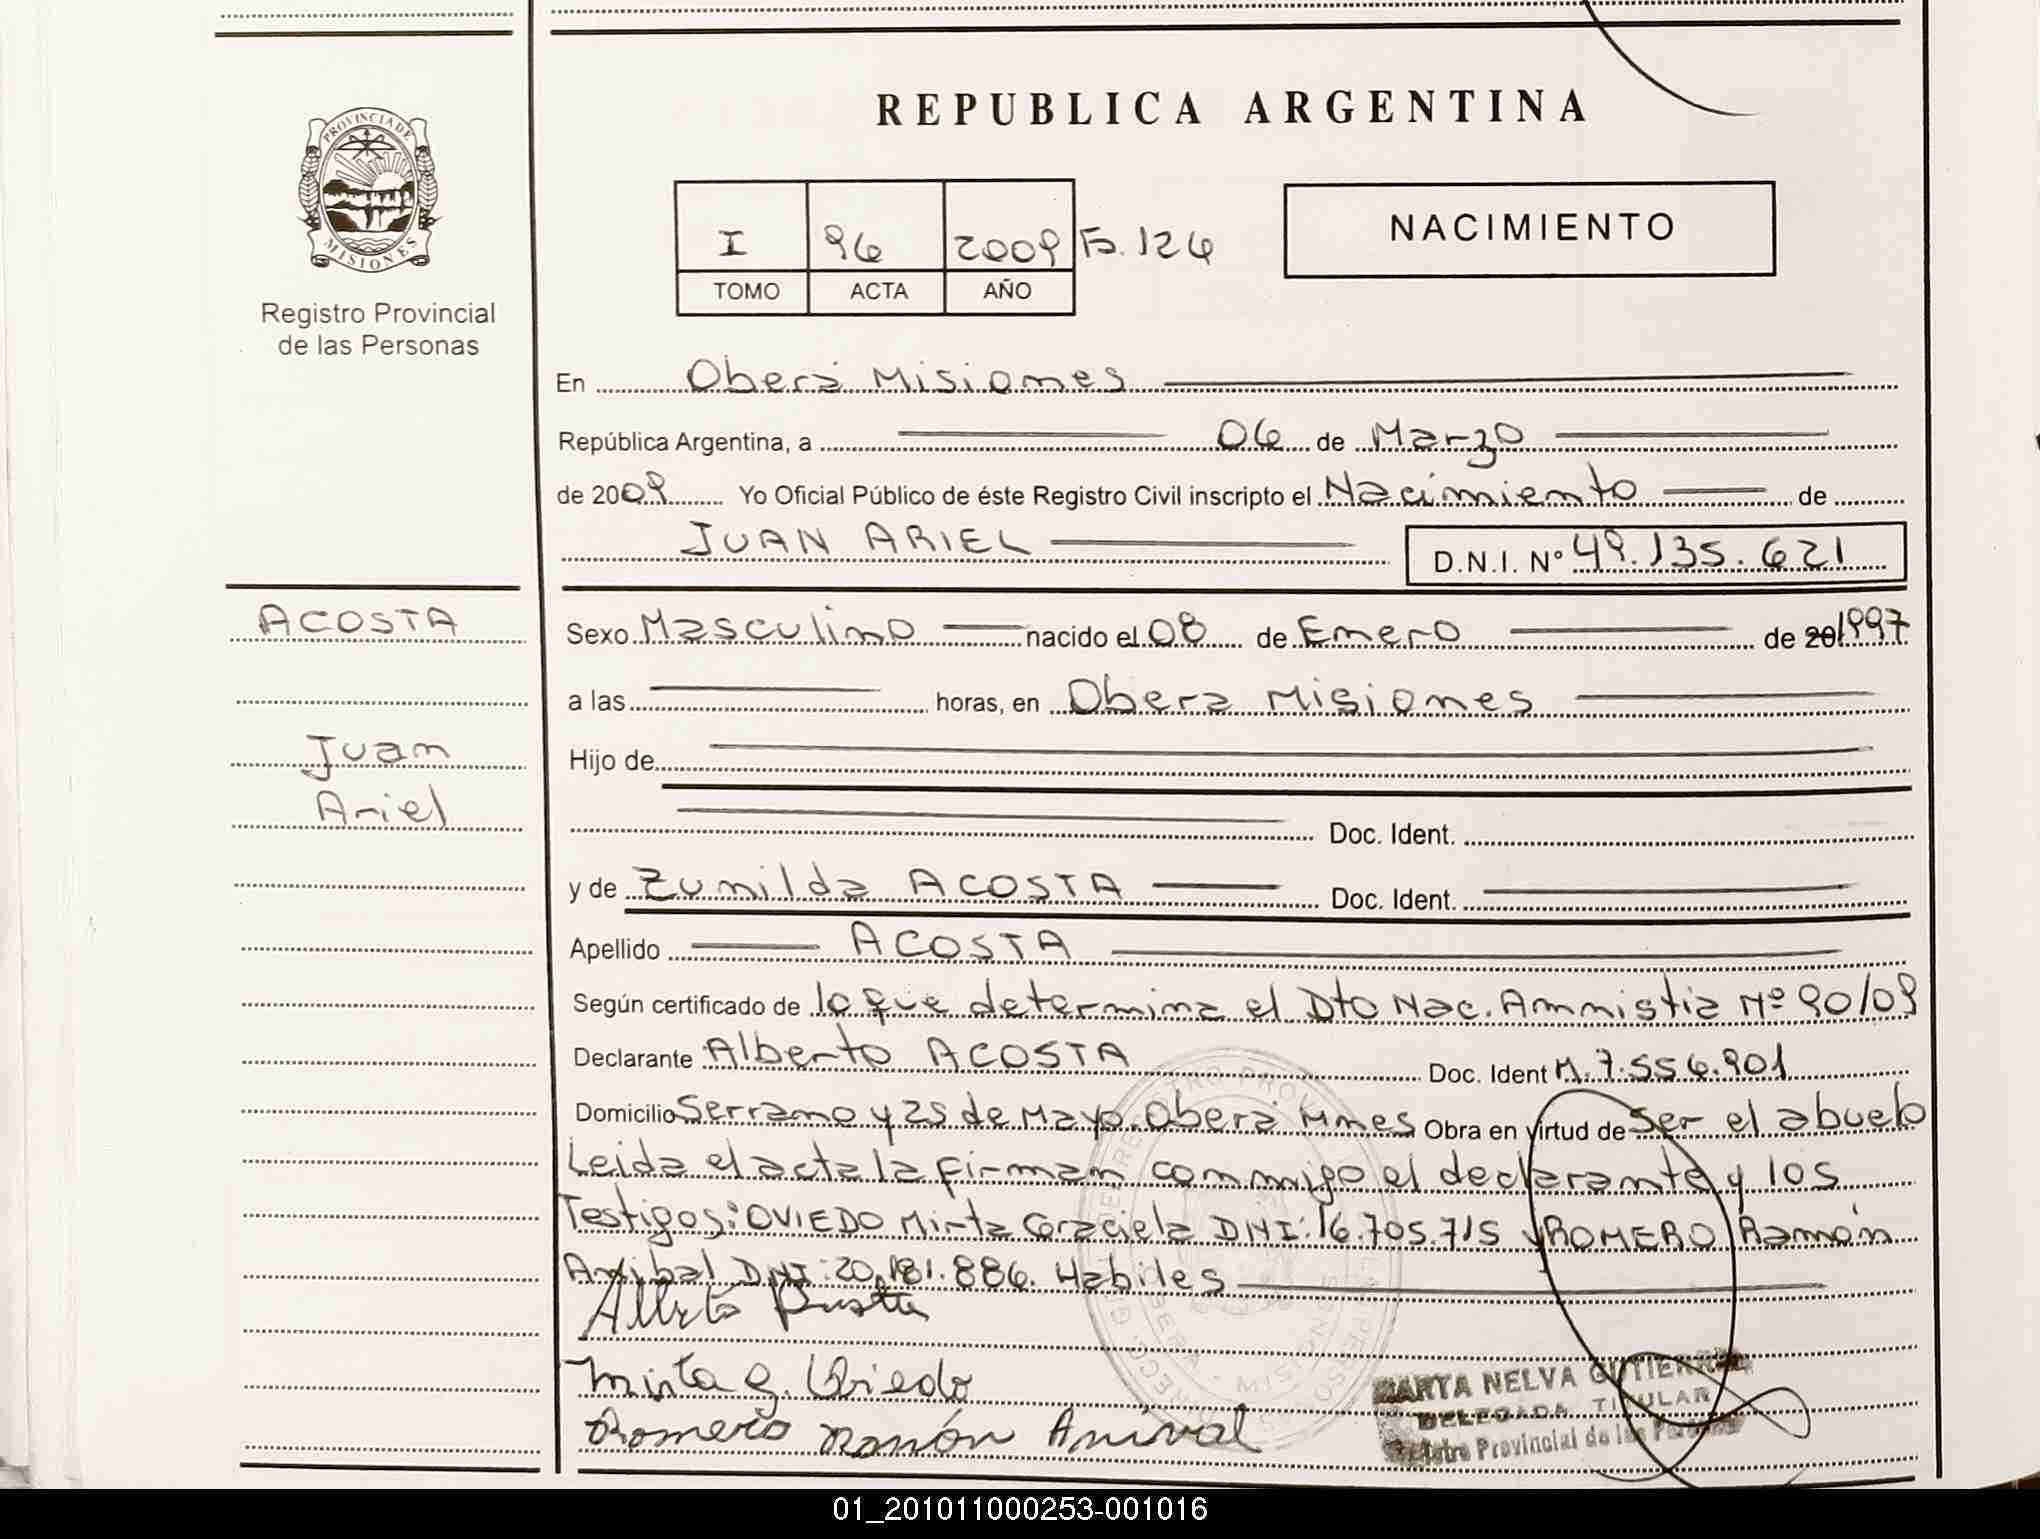 PROVINCIA DE
MISIONES
Registro Provincial
de las Personas
ACOSTA
Juan
Ariel
REPUBLICA ARGENTINA
I 96 2009 Fo. 126
TOMO ACTA AÑO
NACIMIENTO
En Oberá Misiones
República Argentina, a 06 de Marzo
de 2009 Yo Oficial Público de éste Registro Civil inscripto el Nacimiento de
JUAN ARIEL D.N.I. Nº 49.135.621
Sexo Masculino nacido el 08 de Enero de 20 1997
a las horas, en Obera Misiones
Hijo de
Doc. Ident.
y de Zunilda ACOSTA Doc. Ident.
Apellido ACOSTA
Según certificado de lo que determina el Dto Nac. Amnistia Nº 90/09
Declarante Alberto ACOSTA Doc. Ident M. 7.556.901
Domicilio Serrano y 25 de Mayo. Oberá Mnes Obra en virtud de Ser el abuelo
Leida el acta la firman conmigo el declarante y los
Testigos: OVIEDO Mirta Graciela DNI: 16.705.715 y ROMERO Ramón
Anibal DNI: 20.181.886. Habiles
Mirta G. Oviedo
Romero Ramón Anival
MARTA NELVA GUTIERREZ
DELEGADA TITULAR
Registro Provincial de las Personas
01_201011000253-001016